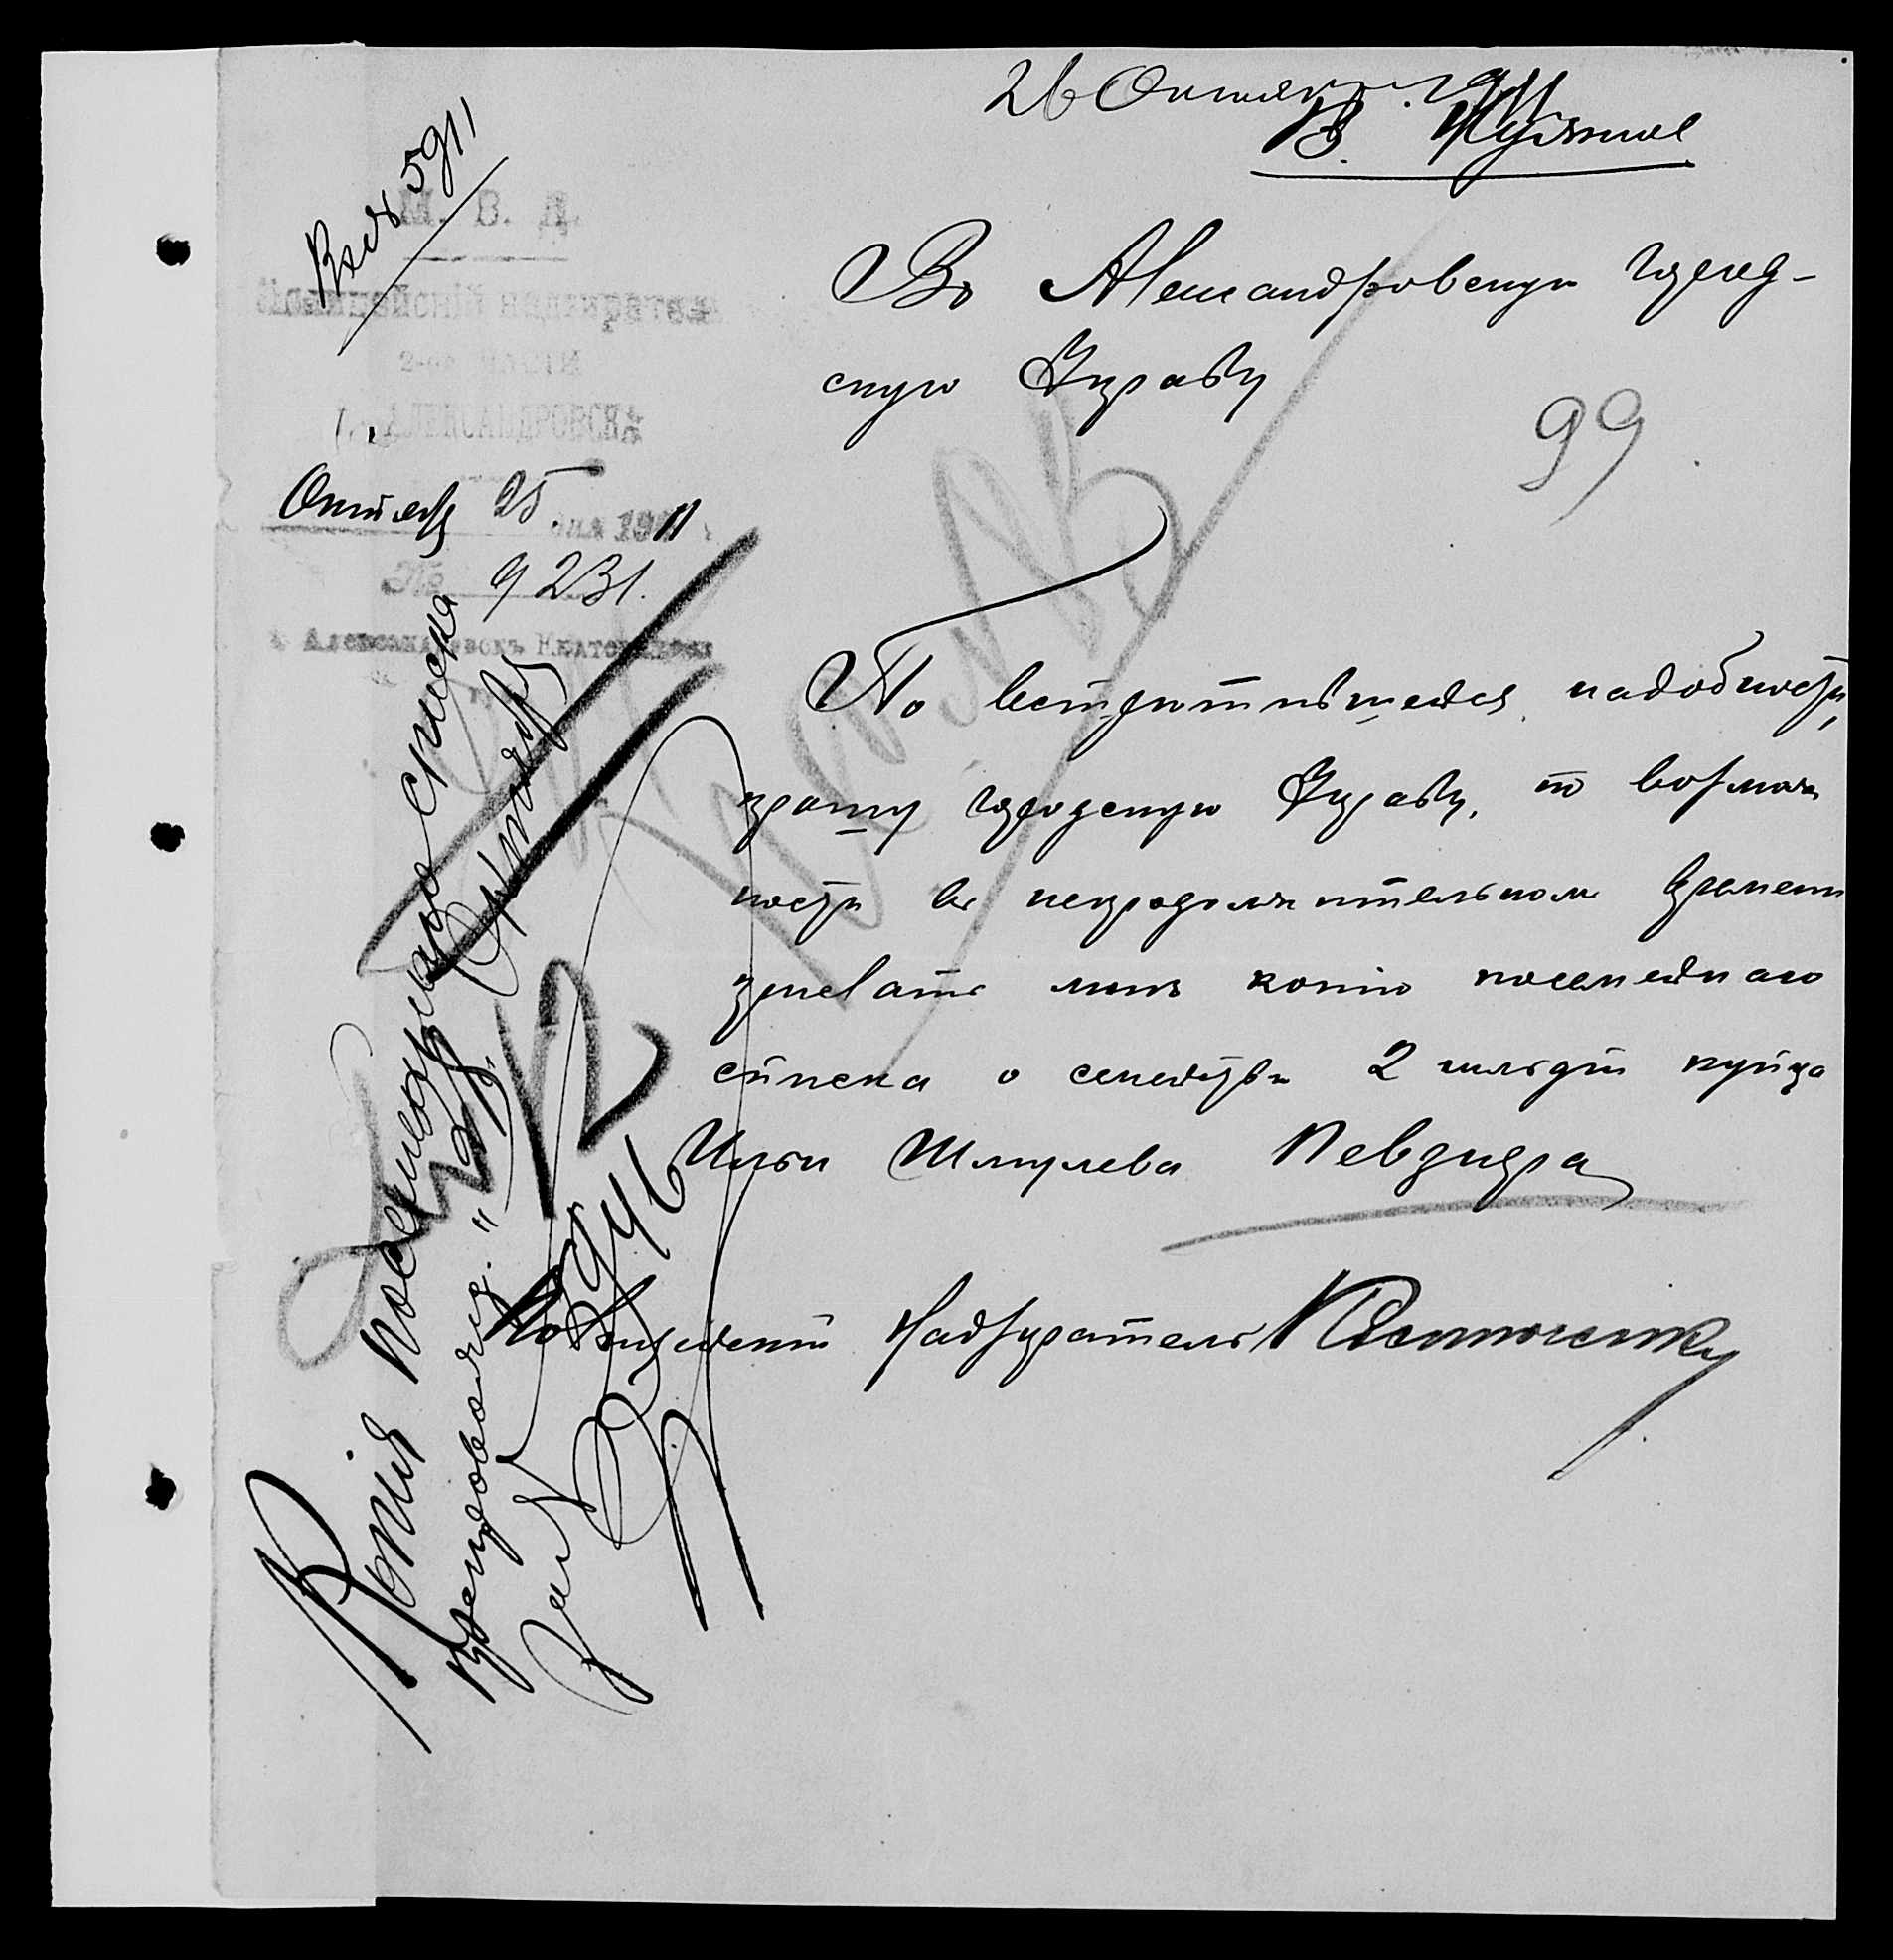 26 Октября 1911
В.
Вход 5911
М. В. Д.
Полицейскій надзиратель
2-ой части
г. АЛЕКСАНДРОВСКА
Октября 25 дня 1911 г.
№ 9231.
г. Александровскъ Екатеринослав
Въ Александровскую Город-
скую Управу
99
По встрѣтившейся надобности,
прошу Городскую Управу, по возмож
ности въ непродолжительномъ времени
прислать мнѣ копію посемейнаго
списка о семействѣ 2 гильдіи купца
Ильи Шмулева Певзнера
Полицейскій Надзиратель
Копія посемейнаго списка
препровожд. " 28 " Октября
№ 5946